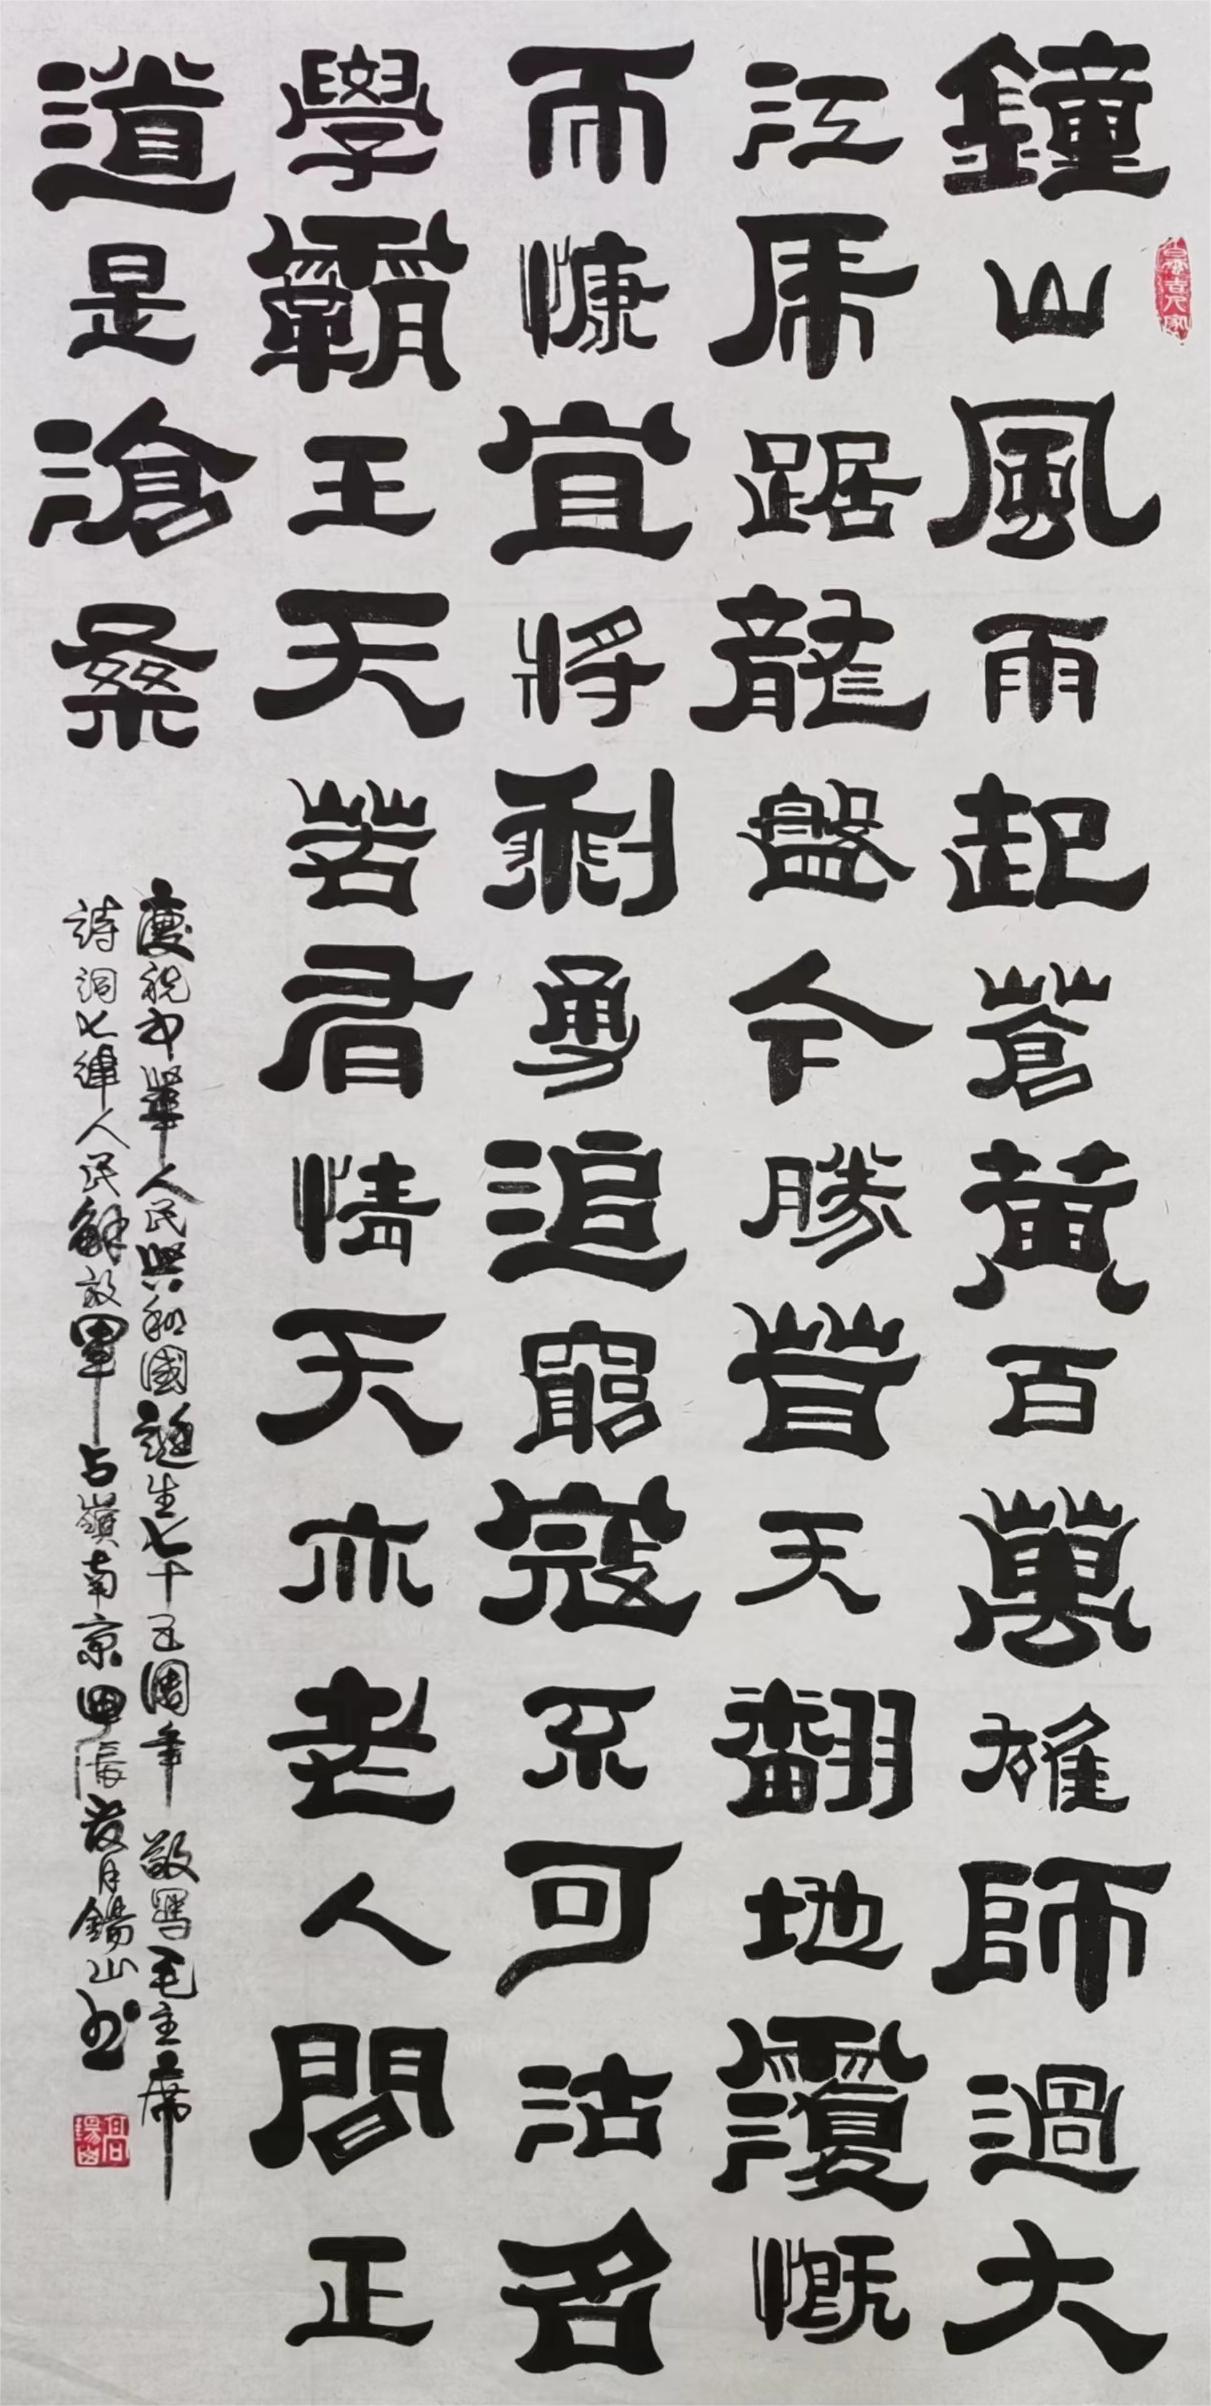 鐘山風雨起蒼黃百萬雄師過大
江虎踞龍盤今勝昔天翻地覆慨
而慷宜將剩勇追窮寇不可沽名
學霸王天若有情天亦老人間正
道是滄桑
慶祝中華人民共和國誕生七十五周年 敬寫毛主席
詩詞七律人民解放軍占領南京 甲辰 月錫山书
高錫山